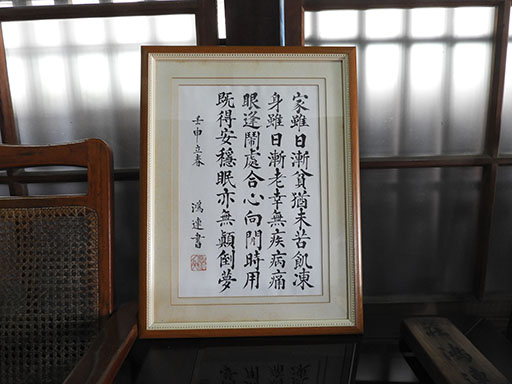 家雖日漸貧猶未苦飢凍
身雖日漸老幸無疾病痛
眼逢鬧處合心向閒時用
既得安穩眠亦無顛倒夢
壬申立春
鴻達書